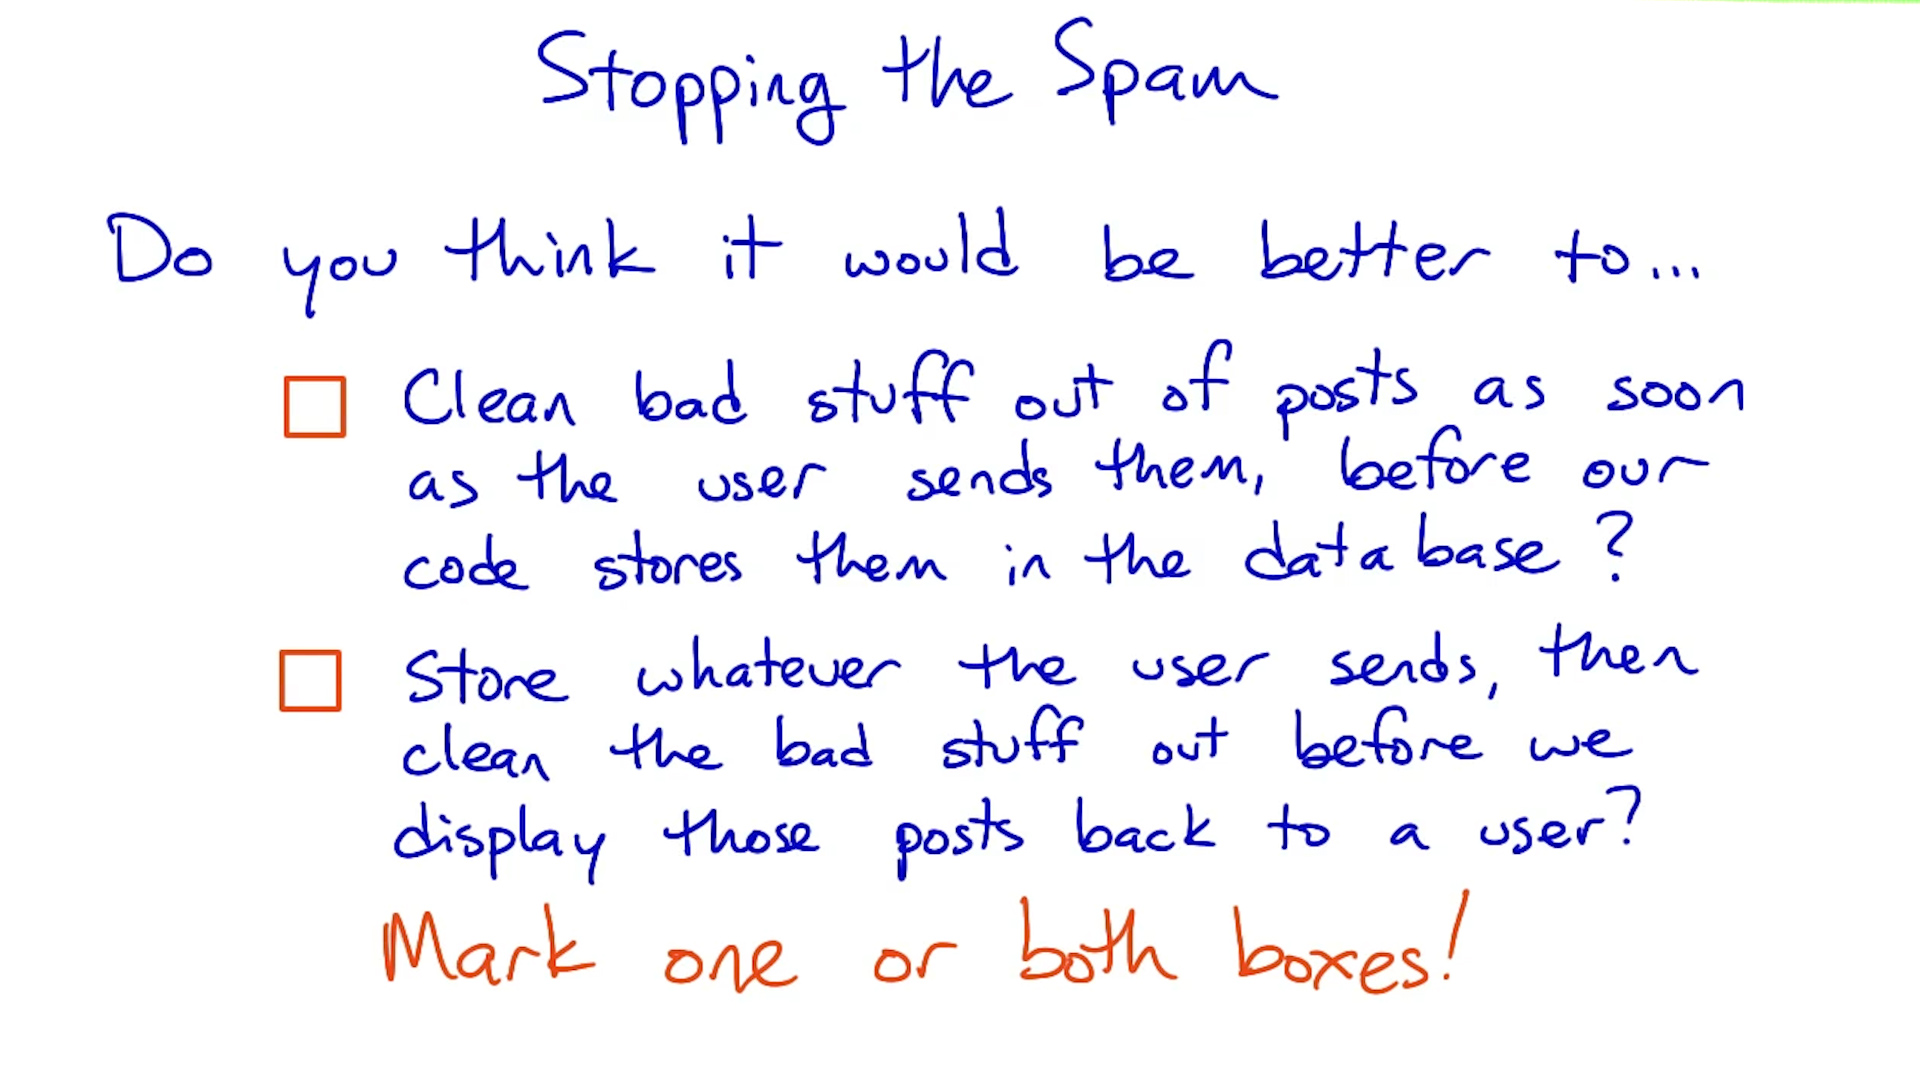 Stopping the Spam
Do you think it would be better to...
Clean bad stuff out of posts as soon
as the user sends them, before our
code stores them in the database?
Store whatever the user sends, then
clean the bad stuff out before we
display those posts back to a user?
Mark one or both boxes!